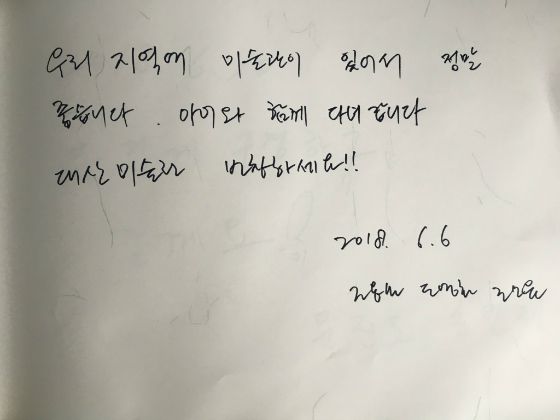 우리 지역에 미술관이 있어서 정말
좋습니다. 아이와 함께 다녀 갑니다
대산미술관 번창하세요!!
2018. 6.6